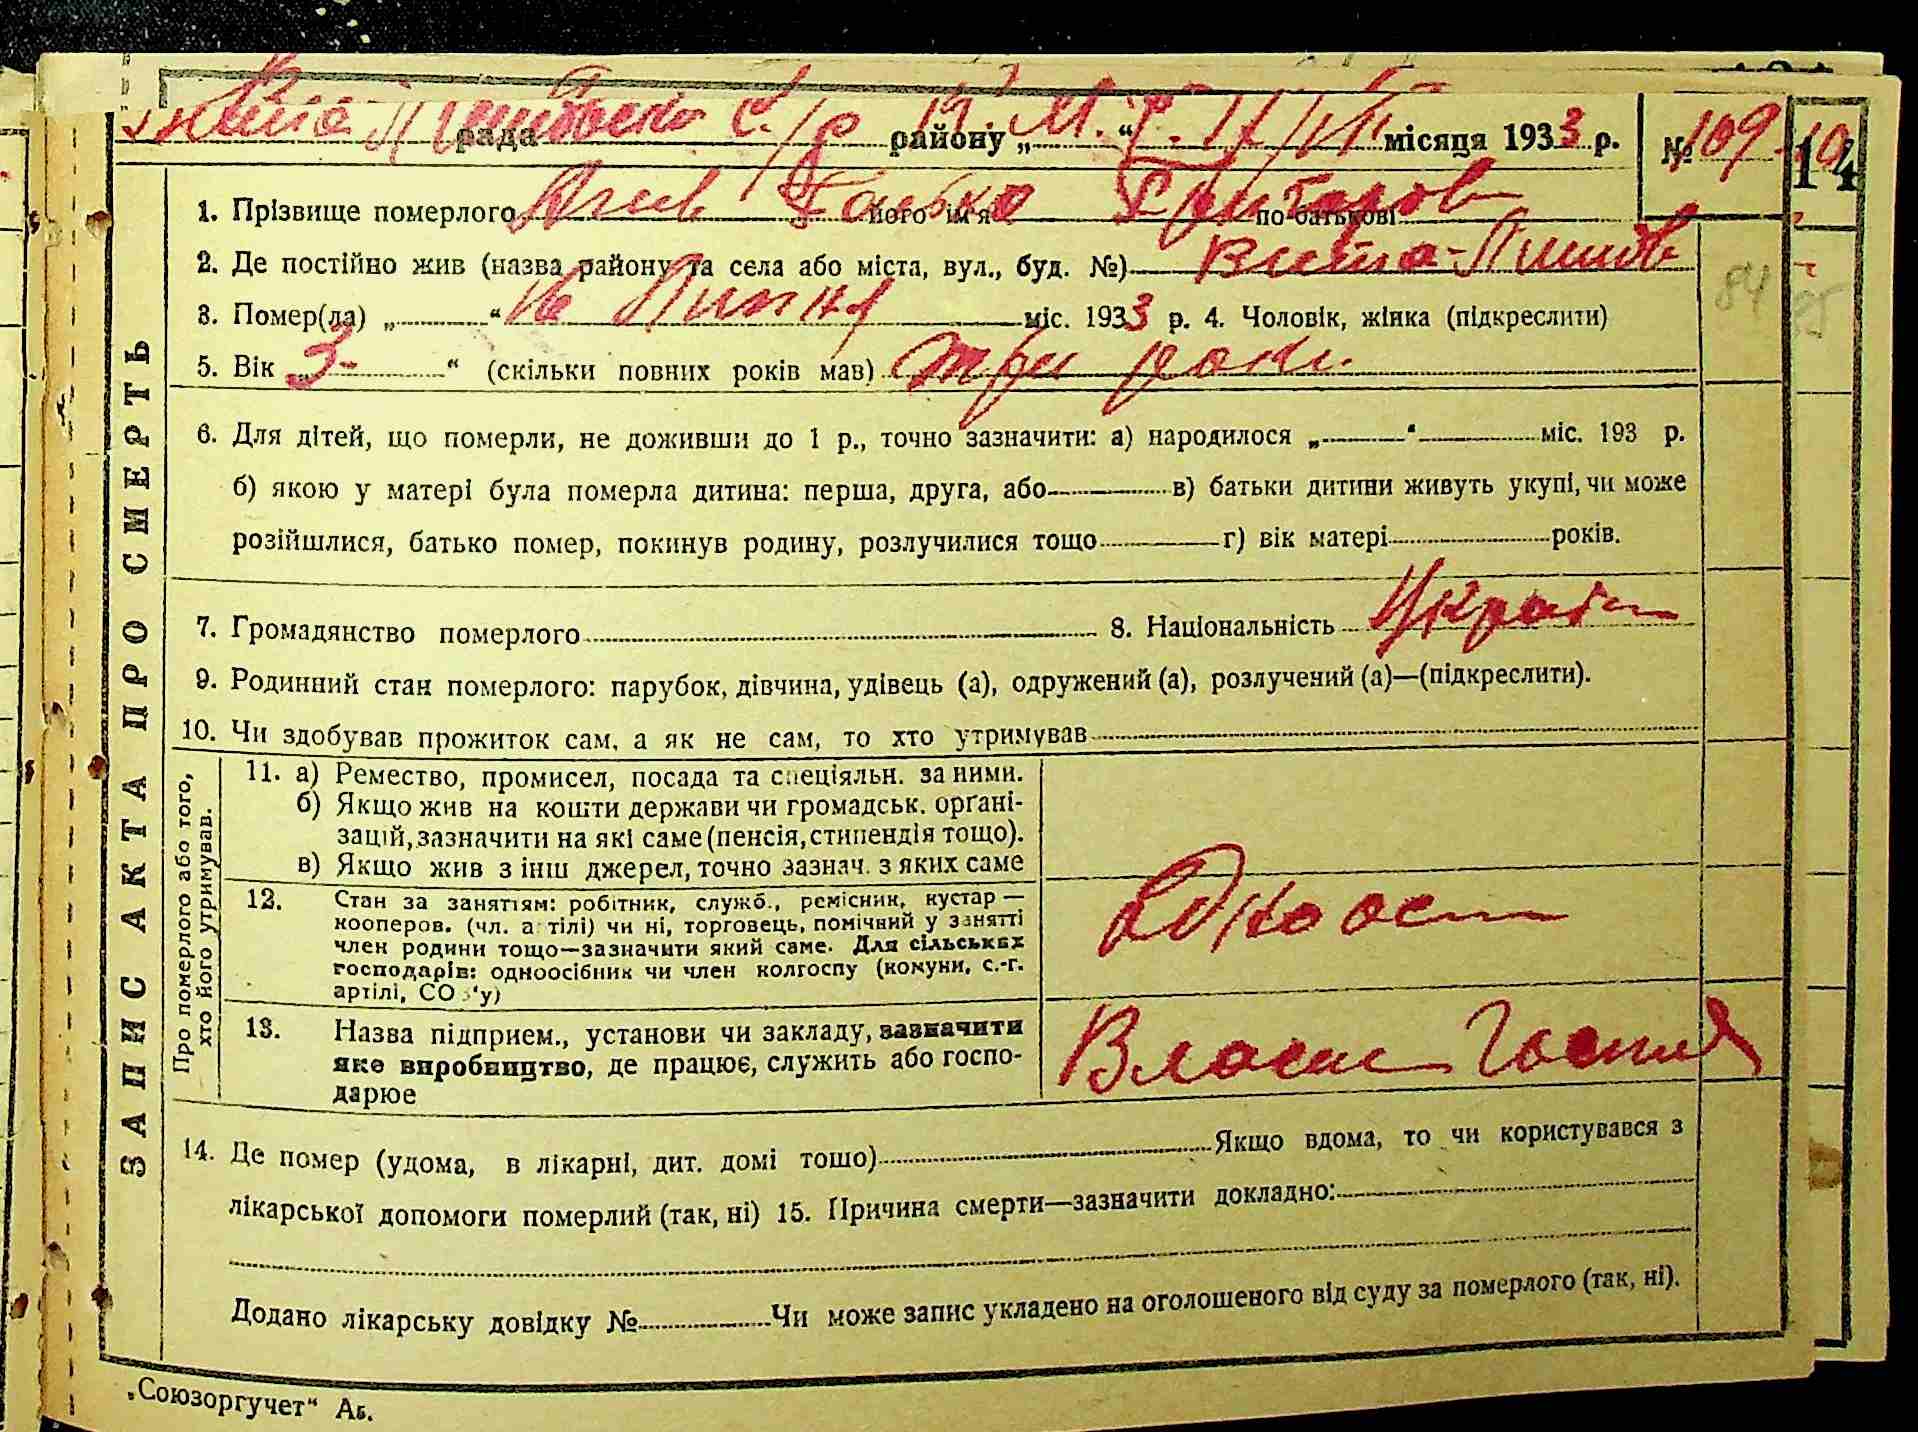 рада району „ “ місяця 1933 р. № 109
1. Прізвище померлого його ім'я по батькові
2. Де постійно жив (назва району та села або міста, вул., буд. №) Вита-
3. Помер(ла) „ “ міс. 1933 р. 4. Чоловік, жінка (підкреслити)
84
5. Вік „ 3 “ (скільки повних років мав) три роки.
6. Для дітей, що померли, не доживши до 1 р., точно зазначити: а) народилося „ “ міс. 193 р.
б) якою у матері була померла дитина: перша, друга, або в) батьки дитини живуть укупі, чи може
розійшлися, батько помер, покинув родину, розлучилися тощо г) вік матері років.
7. Громадянство померлого 8. Національність
9. Родинний стан померлого: парубок, дівчина, удівець (а), одружений (а), розлучений (а)—(підкреслити).
10. Чи здобував прожиток сам, а як не сам, то хто утримував
Про померлого або того,
хто його утримував.
11. а) Ремество, промисел, посада та спеціяльн. за ними.
б) Якщо жив на кошти держави чи громадськ. орґані-
зацій, зазначити на які саме (пенсія, стипендія тощо).
в) Якщо жив з інш джерел, точно зазнач. з яких саме
12. Стан за заняттям: робітник, служб., ремісник, кустар —
кооперов. (чл. артілі) чи ні, торговець, помічний у занятті
член родини тощо—зазначити який саме. Для сільських
господарів: одноосібник чи член колгоспу (комуни, с.-г.
артілі, СО З'у)
Одноос
13. Назва підприєм., установи чи закладу, зазначити
яке виробництво, де працює, служить або госпо-
дарює
Власне
14. Де помер (удома, в лікарні, дит. домі тощо) Якщо вдома, то чи користувався з
лікарської допомоги померлий (так, ні) 15. Причина смерти—зазначити докладно:
Додано лікарську довідку № Чи може запис укладено на оголошеного від суду за померлого (так, ні).
ЗАПИС АКТА ПРО СМЕРТЬ
„Союзоргучет“ Аб.